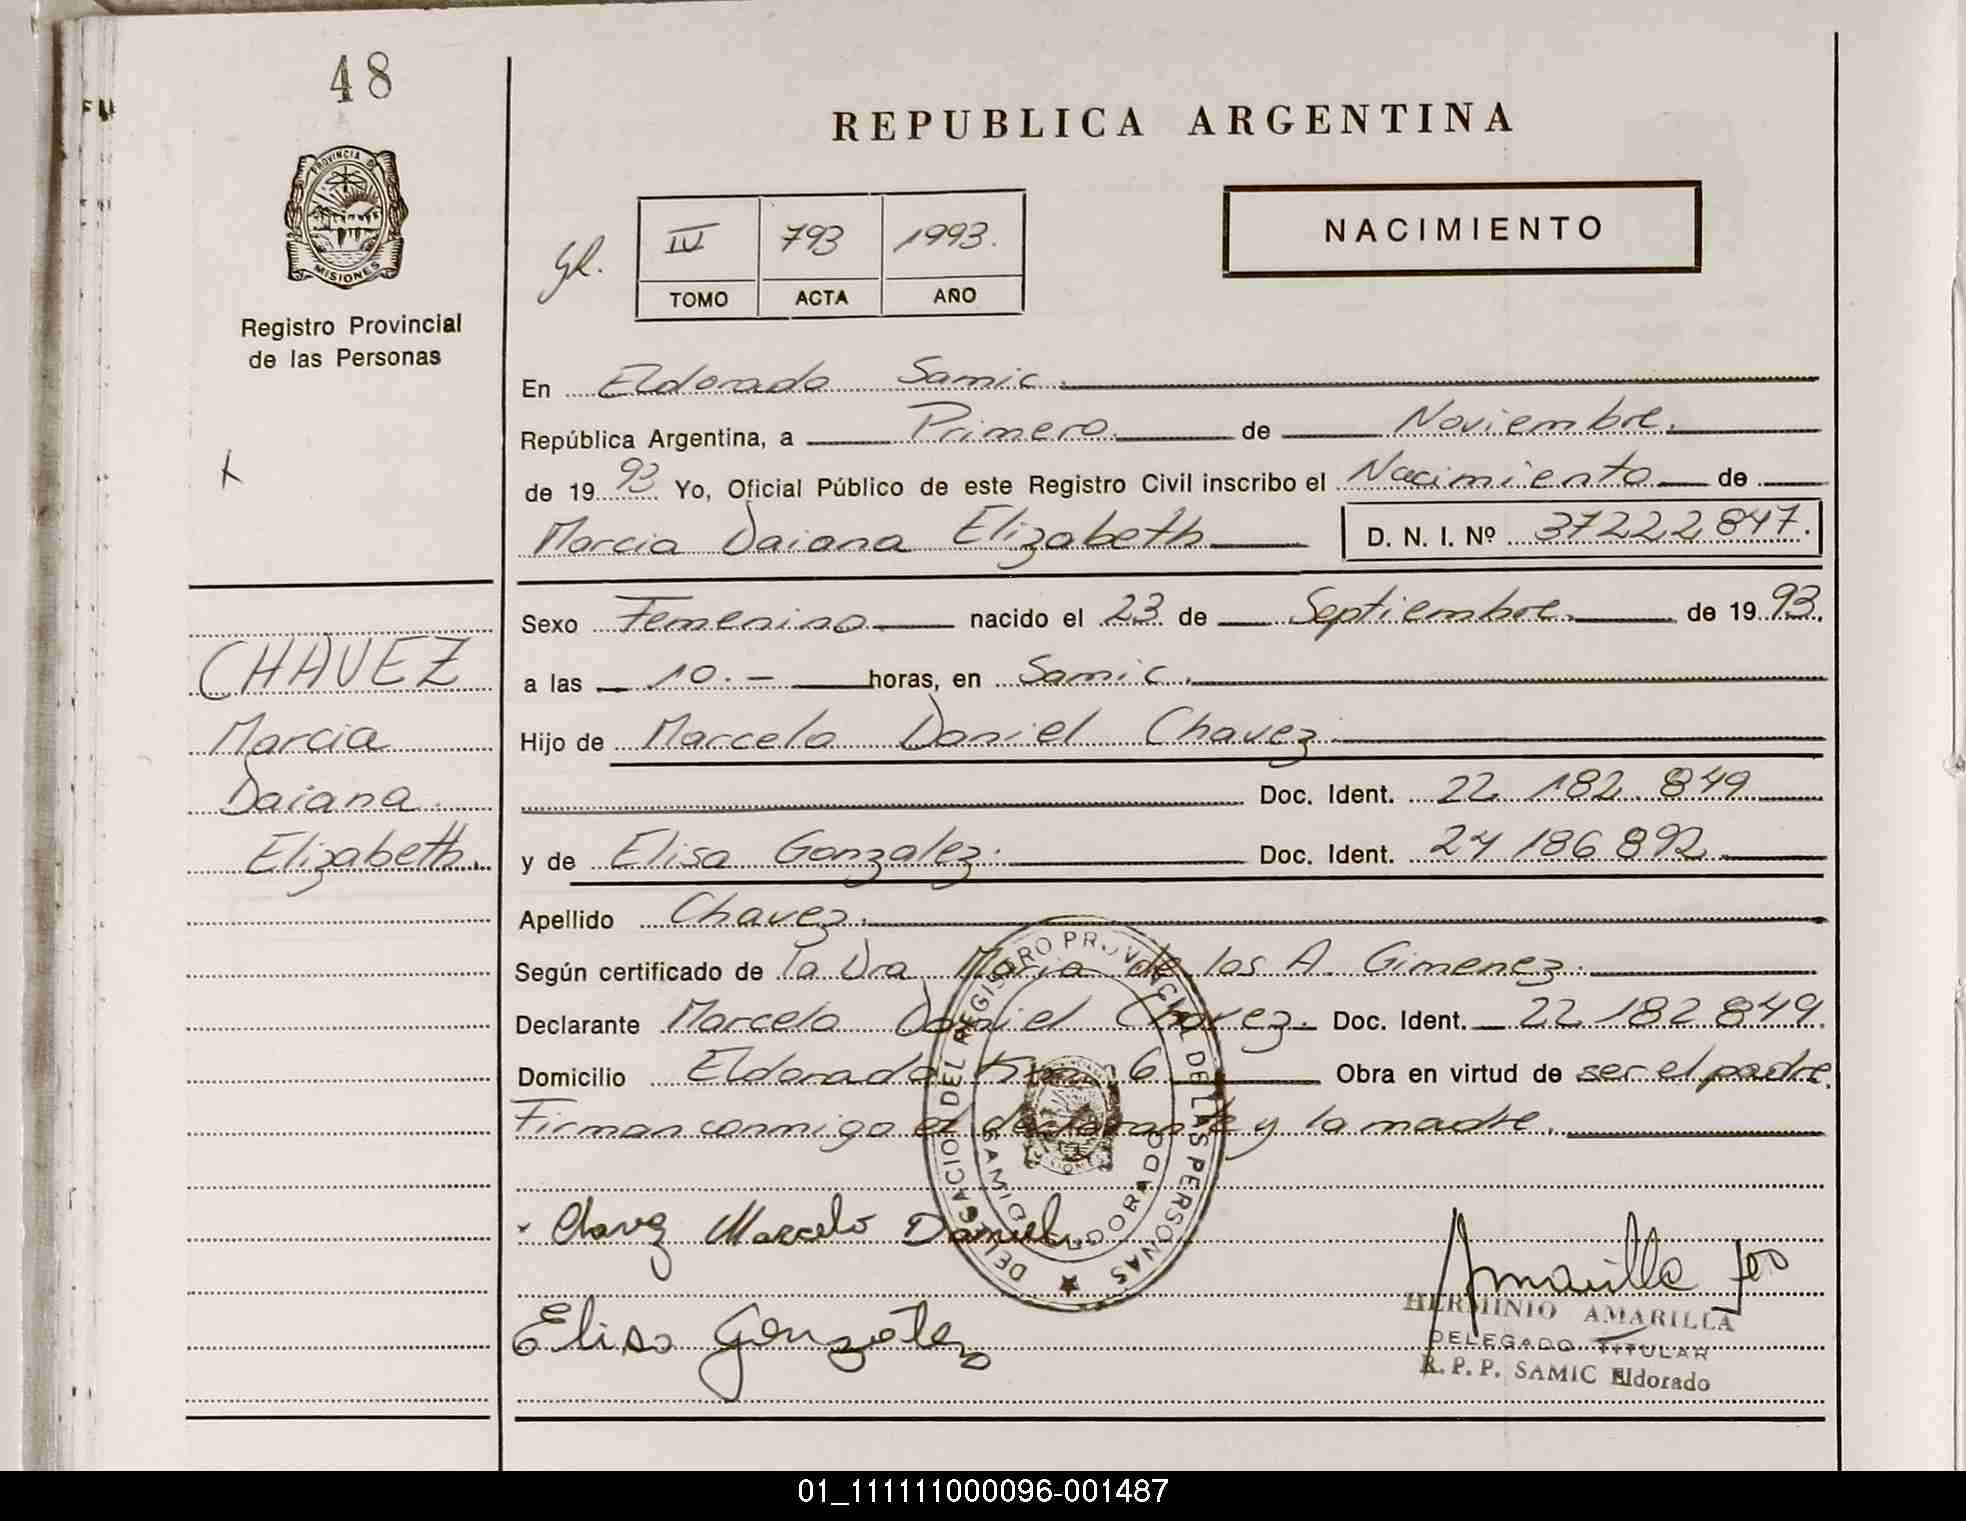 48
PROVINCIA DE
MISIONES
Registro Provincial
de las Personas
REPUBLICA ARGENTINA
NACIMIENTO
IV 793 1993.
TOMO ACTA AÑO
En Eldorado Samic.
República Argentina, a Primero de Noviembre.
de 1993 Yo, Oficial Público de este Registro Civil inscribo el Nacimiento de
Marcia Daiana Elizabeth D. N. I. Nº 37222847.
Sexo Femenino nacido el 23 de Septiembre. de 1993.
a las 10.- horas, en Samic.
CHAVEZ
Marcia
Daiana
Elizabeth.
Hijo de Marcelo Daniel Chavez.
Doc. Ident. 22 182 849
y de Elisa Gonzalez. Doc. Ident. 24 186 892
Apellido Chavez.
Según certificado de la Dra Maria de los A. Gimenez.
Declarante Marcelo Daniel Chavez. Doc. Ident. 22 182 849.
Domicilio Eldorado Km 6 Obra en virtud de ser el padre.
Firman conmigo el declarante y la madre.
DELEGACION DEL REGISTRO PROVINCIAL DE LAS PERSONAS
SAMIC ELDORADO
Chavez Marcelo Daniel
Elisa Gonzalez
Amarilla
HERMINIO AMARILLA
DELEGADO TITULAR
R. P. P. SAMIC Eldorado
01_111111000096-001487